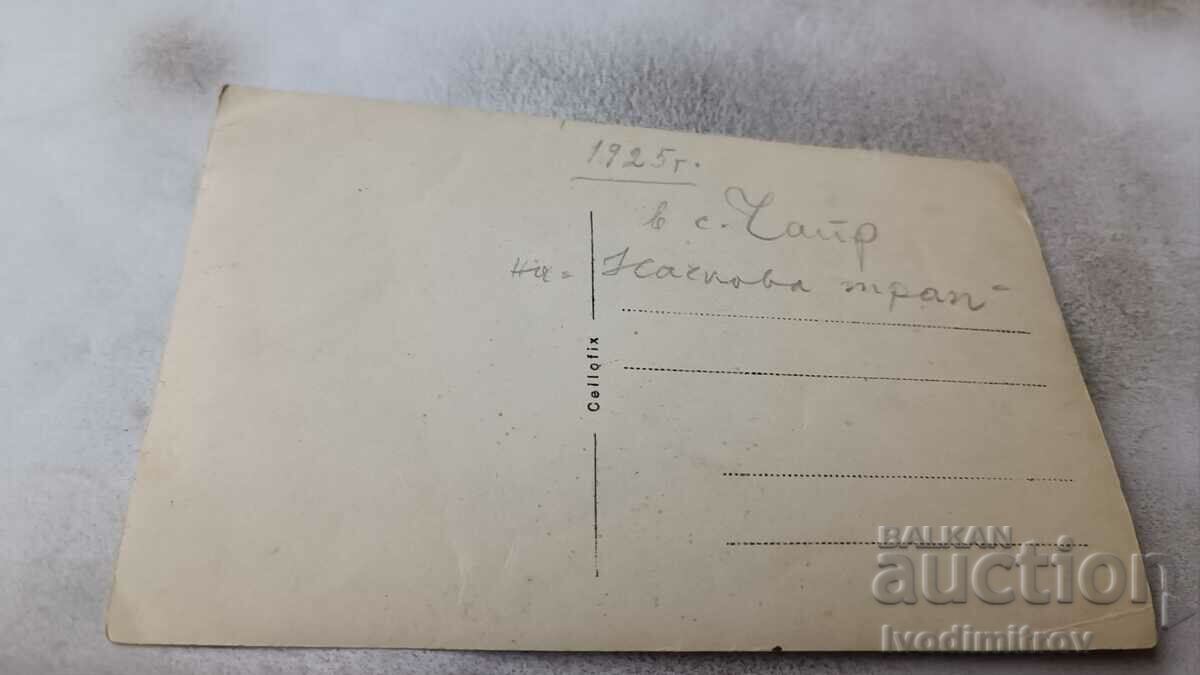 1925 г.
в с. Чаир
на "Начкова трап"
Cellofix
BALKAN
auction
Ivodimitrov